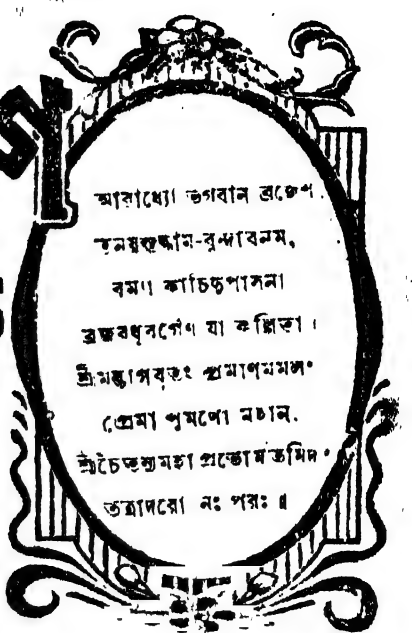 আরাধ্যো ভগবান ব্রজেশ
তনয়স্তদ্ধাম-বৃন্দাবনম,
রম্যা কাচিদুপাসনা
ব্রজবধূবর্গেণ যা কল্পিতা ।
শ্রীমদ্ভাগবতং প্রমাণমমলং
প্রেমা পুমর্থো মহান,
শ্রীচৈতন্যমহাপ্রভোর্মতমিদং
তত্রাদরো নঃ পরঃ ॥